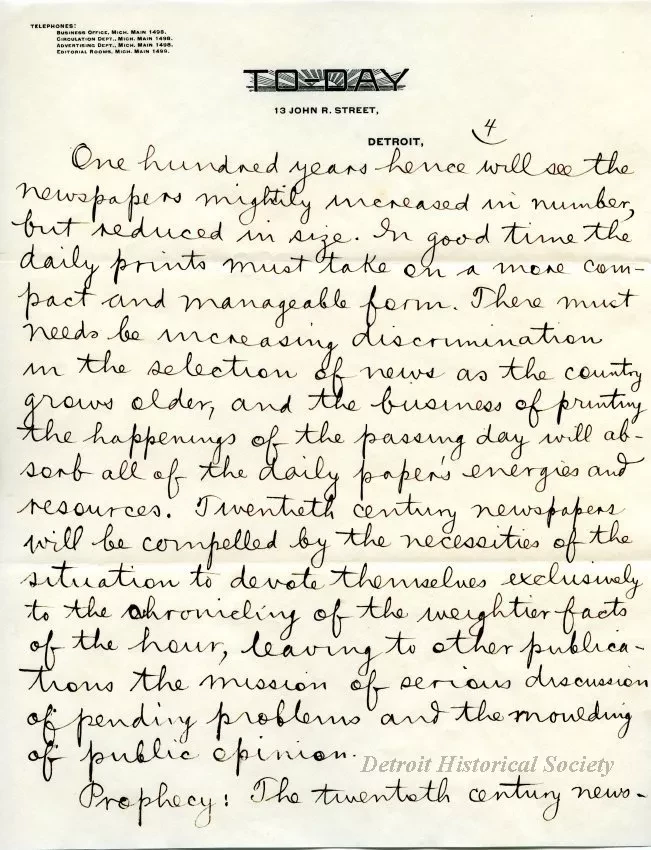 TELEPHONES:
BUSINESS OFFICE, MICH. MAIN 1498.
CIRCULATION DEPT., MICH. MAIN 1498.
ADVERTISING DEPT., MICH. MAIN 1498.
EDITORIAL ROOMS, MICH. MAIN 1499.
TO-DAY
13 JOHN R. STREET,
DETROIT,
4
One hundred years hence will see the
newspapers mightily increased in number,
but reduced in size. In good time the
daily prints must take on a more com-
pact and manageable form. There must
needs be increasing discrimination
in the selection of news as the country
grows older, and the business of printing
the happenings of the passing day will ab-
sorb all of the daily paper's energies and
resources. Twentieth century newspapers
will be compelled by the necessities of the
situation to devote themselves exclusively
to the chronicling of the weightier facts
of the hour, leaving to other publica-
tions the mission of serious discussion
of pending problems and the moulding
of public opinion.
Detroit Historical Society
Prophecy: The twentieth century news-